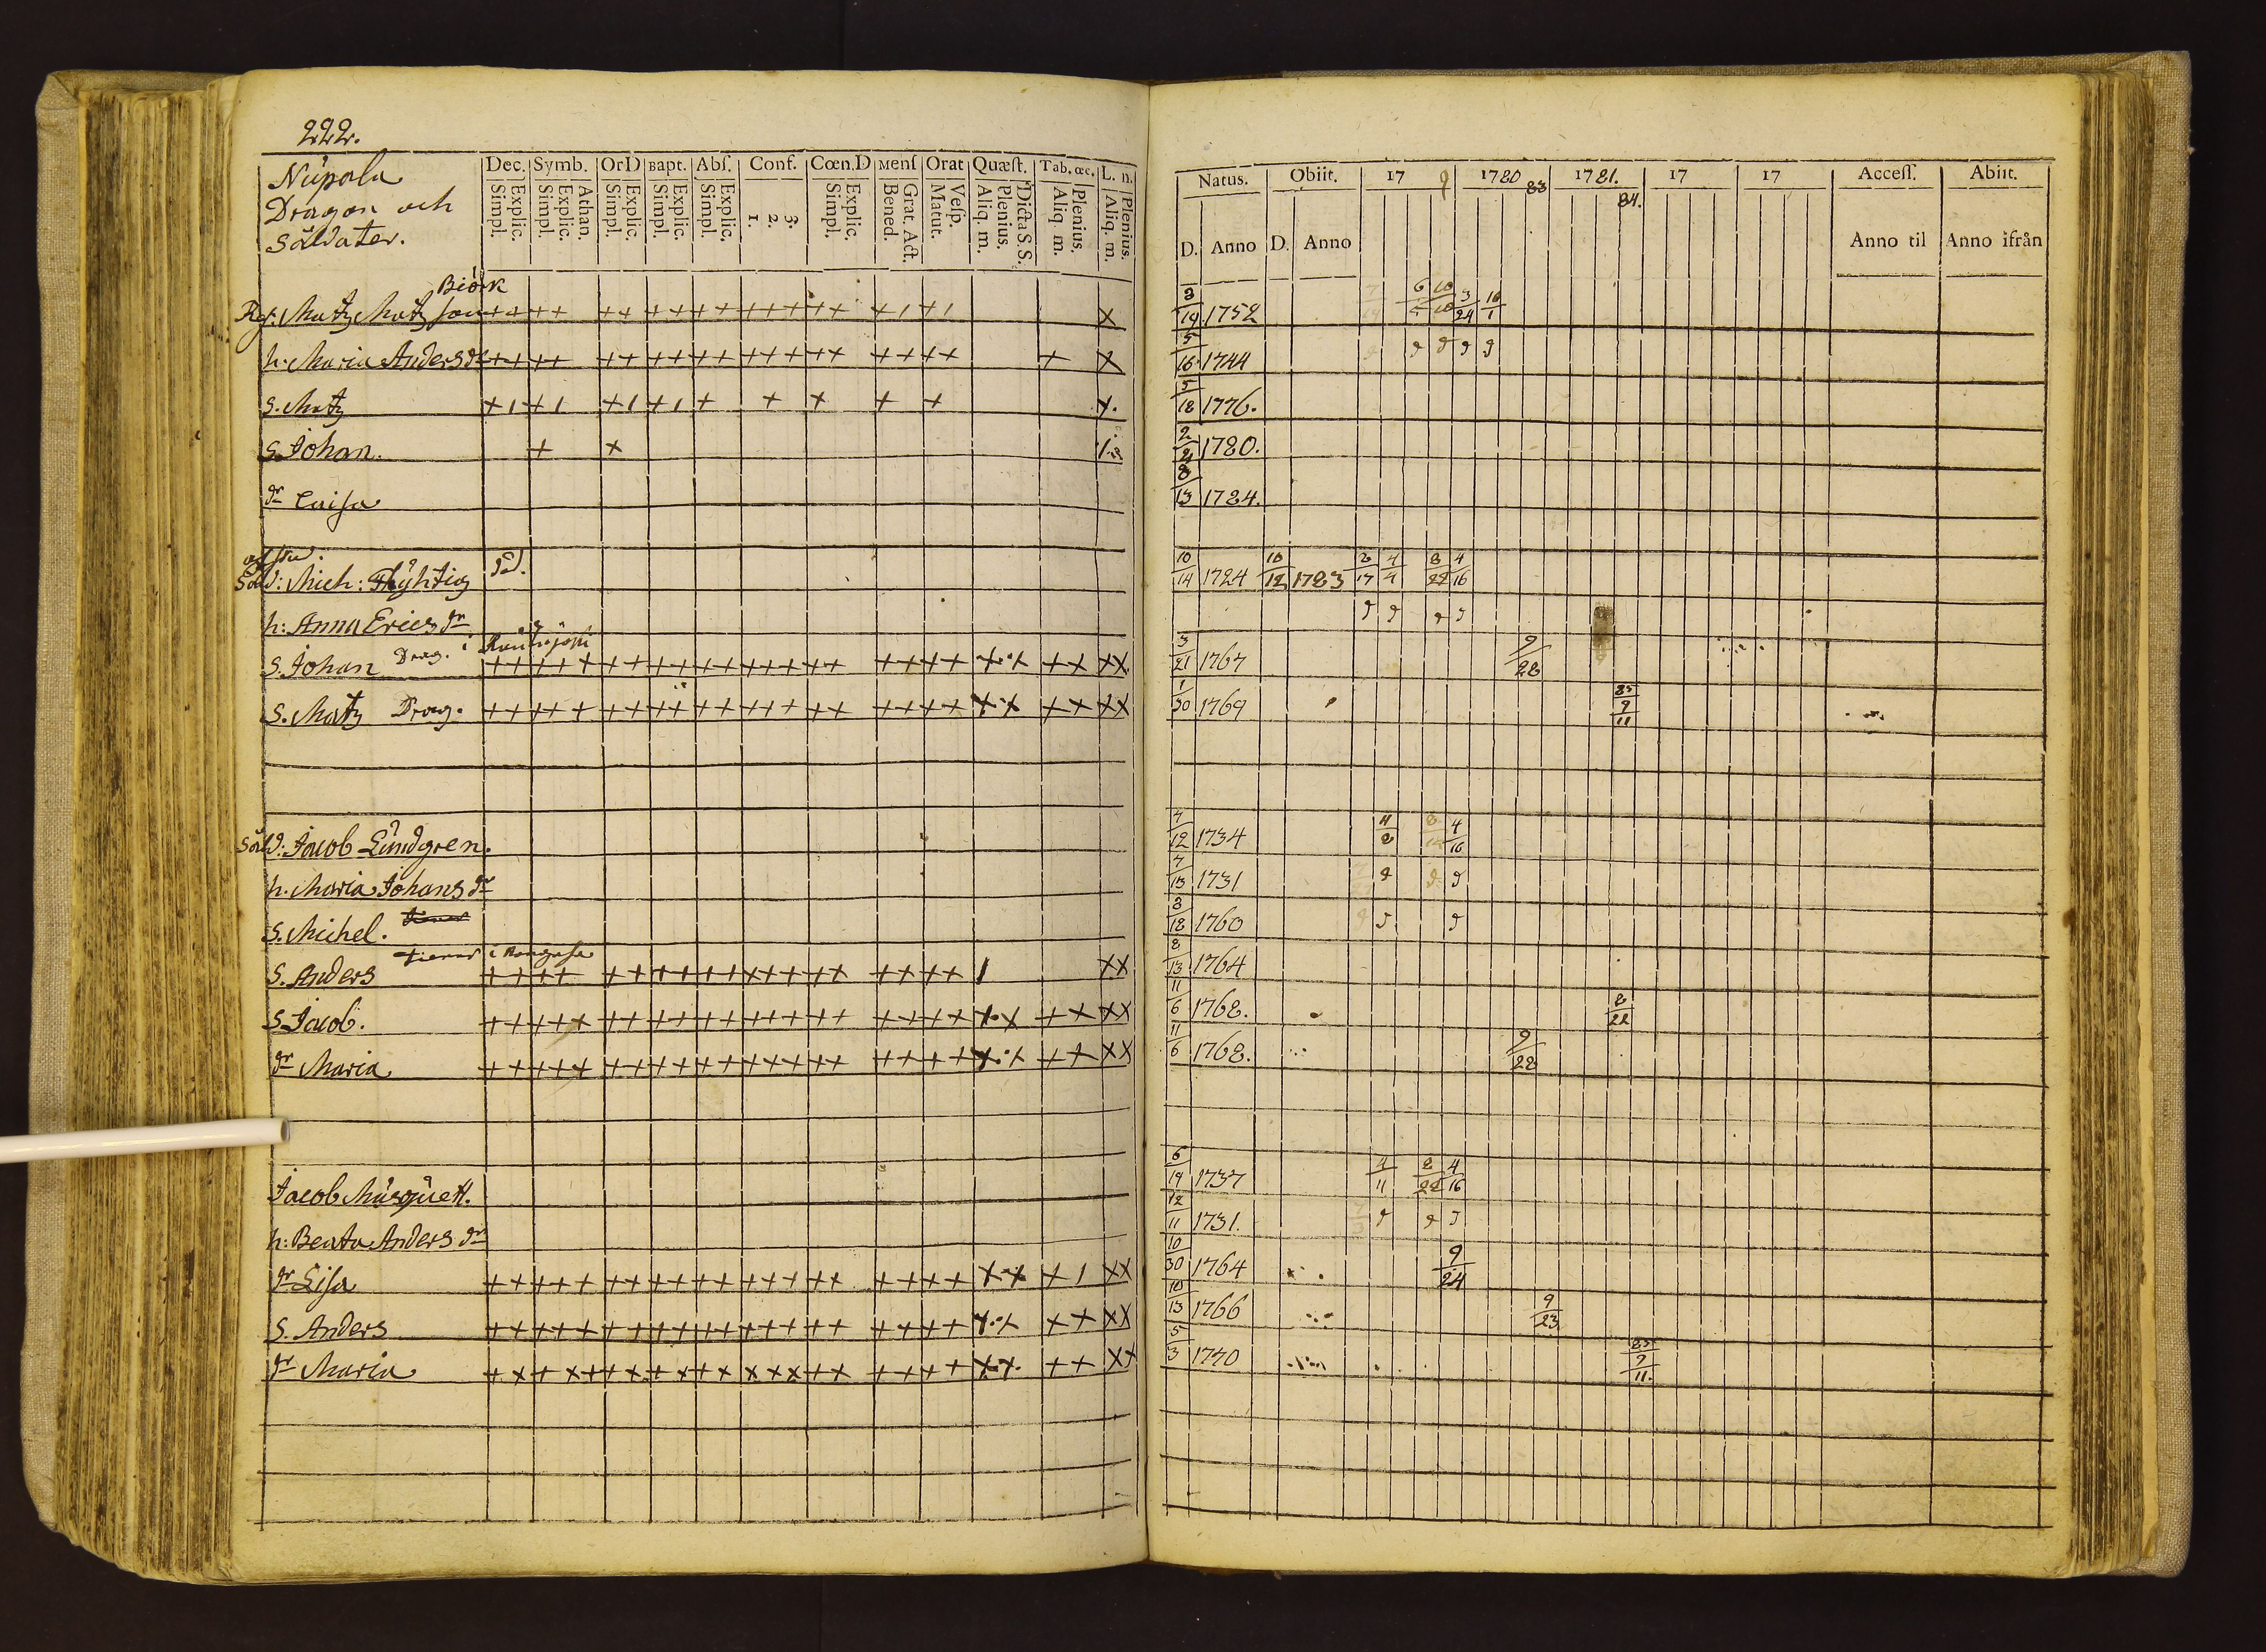 222.
Nupola
Dragon och
Soldater.
Dec. Symb. OrD Bapt. Abſ. Conf. Cœn.D Menſ Orat Quæſt. Tab. œc. L. n.
Simpl. Explic. Simpl. Explic. Athan. Simpl. Explic. Simpl. Explic. Simpl. Explic. 1. 2. 3. Simpl. Explic. Bened. Grat. Act. Matut. Veſp. Aliq. m. Plenius. Dicta S. S. Aliq. m. Plenius. Aliq. m. Plenius.
Natus. Obiit. 17 9 1780 83 1781. 84. 17 17 Acceſſ. Abiit.
D. Anno D. Anno Anno til Anno ifrån
Biörk
Matz Matzson ++ ++ ++ ++ ++ +++ ++ +1 +1 x 3/19 1752 6 10 3/24 10/1
h: Maria Andersdr ++ ++ ++ ++ ++ +++ ++ ++ ++ + x 5/16 1744
S. Matz +1 +1 +1 +1 + + + + + x. 5/18 1776.
S. Johan. + + 2/2 1780.
dr Caisa 8/13 1784.
Sold: Mich: Flyhtig död. 10/14 1724 10/12 1783 2/17 4/4 8/22 4/16
h: Anna Ericsdr
S. Johan Drag. i ++ +++ ++ ++ ++ +++ ++ ++ ++ x x ++ xx 3/21 1767 9/28
S. Matz Drag. ++ +++ ++ ++ ++ +++ ++ ++ ++ x x ++ xx 1/30 1769 85 9/11
Sold: Jacob Lundgren. 7/12 1734 11/8 4/16
h. Maria Johansdr 7/13 1731
S. Michel. 8/18 1760
tienar i
S. Anders ++ ++ ++ ++ ++ +++ ++ ++ ++ 1 xx 2/13 1764
S. Jacob. ++ +++ ++ ++ ++ +++ ++ ++ ++ x x ++ xx 11/6 1768. 8/22
dr Maria ++ +++ ++ ++ ++ +++ ++ ++ ++ x x ++ xx 11/6 1768. 9/28
Jacob Musquett. 6/19 1737 4/11 8/22 4/16
h: Beata Andersdr 12/11 1731.
dr Lisa ++ +++ ++ ++ ++ +++ ++ ++ ++ x x +1 xx 10/30 1764 9/24
S. Anders ++ +++ ++ ++ ++ +++ ++ ++ ++ x x ++ xx 10/13 1766 9/23
dr Maria ++ +++ ++ ++ ++ xxx ++ ++ ++ x x. ++ xx 5/3 1770 85 9/11.